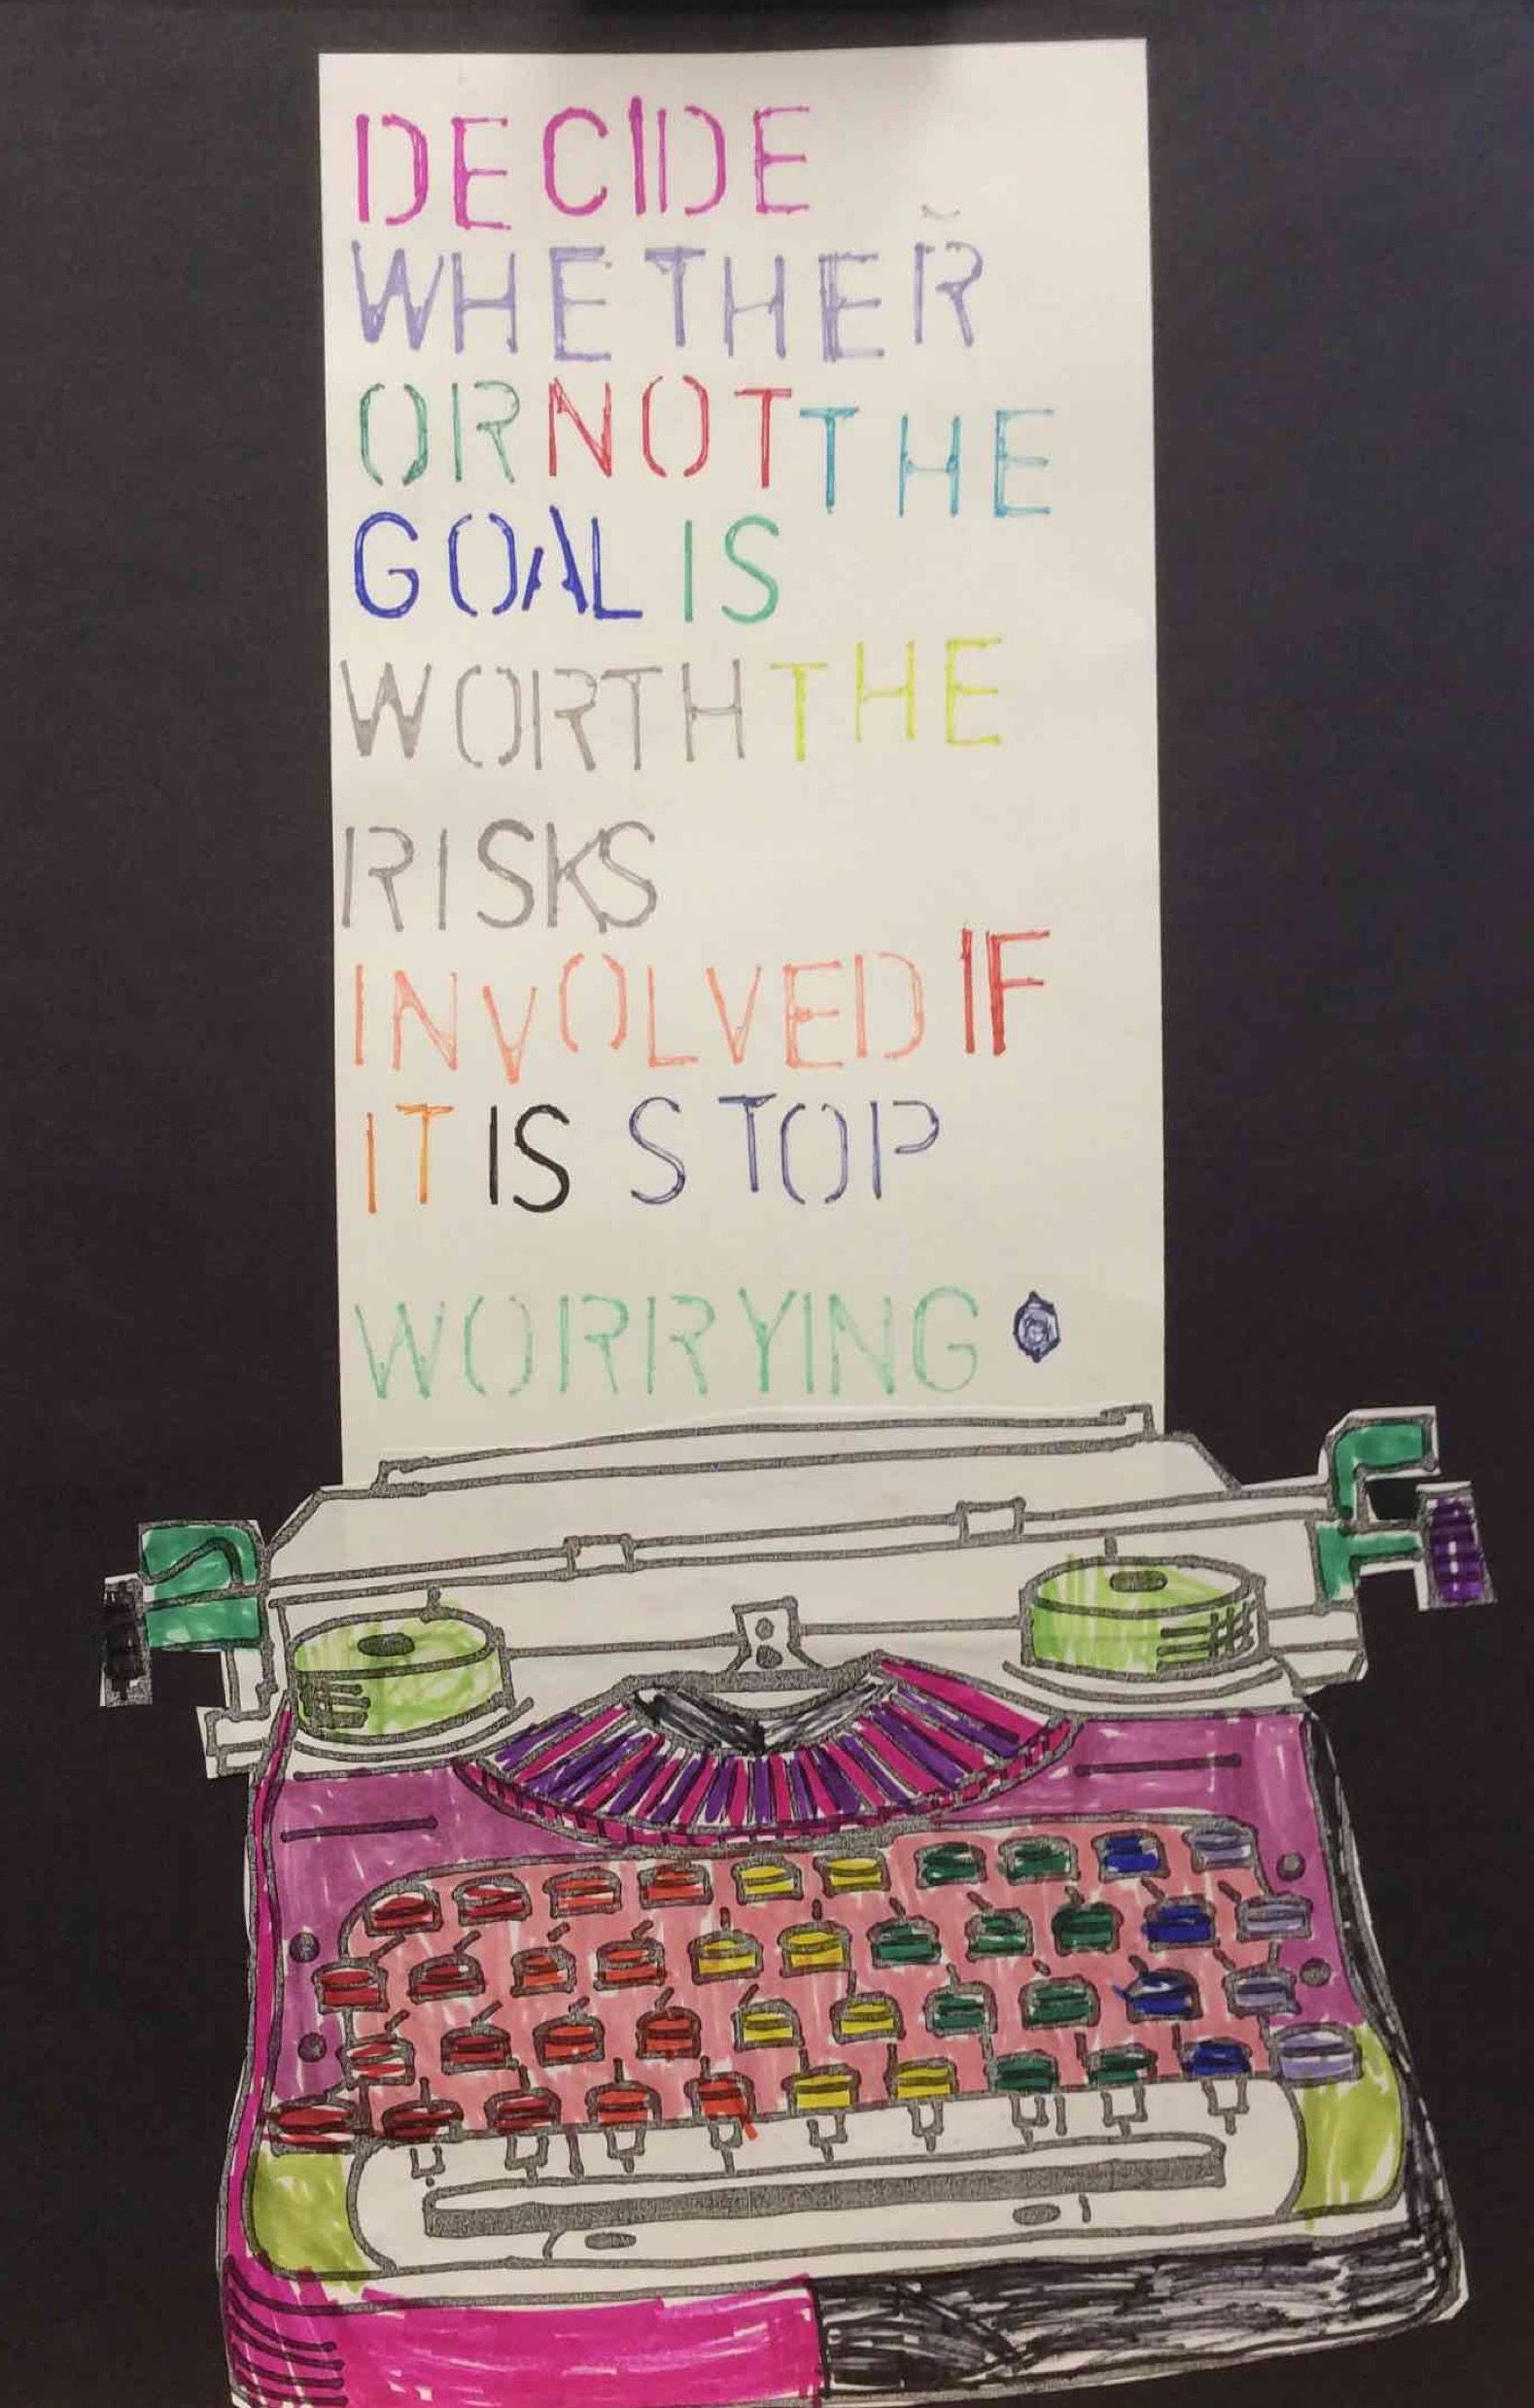 DECIDE
WHETHER
OR NOT THE
GOAL IS
WORTH THE
RISKS
INVOLVED IF
IT IS STOP
WORRYING.